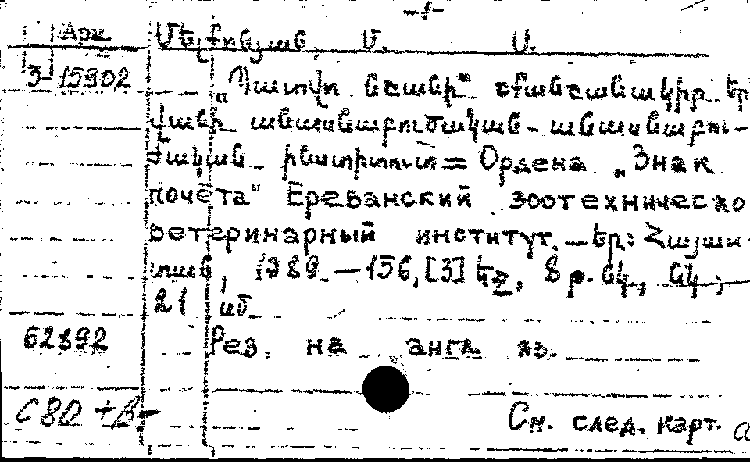 -1-
Арм Մելքոնյան Մ. Մ.
3-15902 „Պատվո նշանի“ շքանշանակիր Եր
վանի անասնաբուծական-անասնաբու-
ժական ինստիտուտ = Ордена „Знак
почёта“ Ереванский зоотехническо
ветеринарный институт.-Եր: Հայաս-
տան, 1989.-156,[3] էջ, 8 թ. նկ., նկ.;
21 սմ.
62892 Рез. на англ. яз.
См. след. карт.